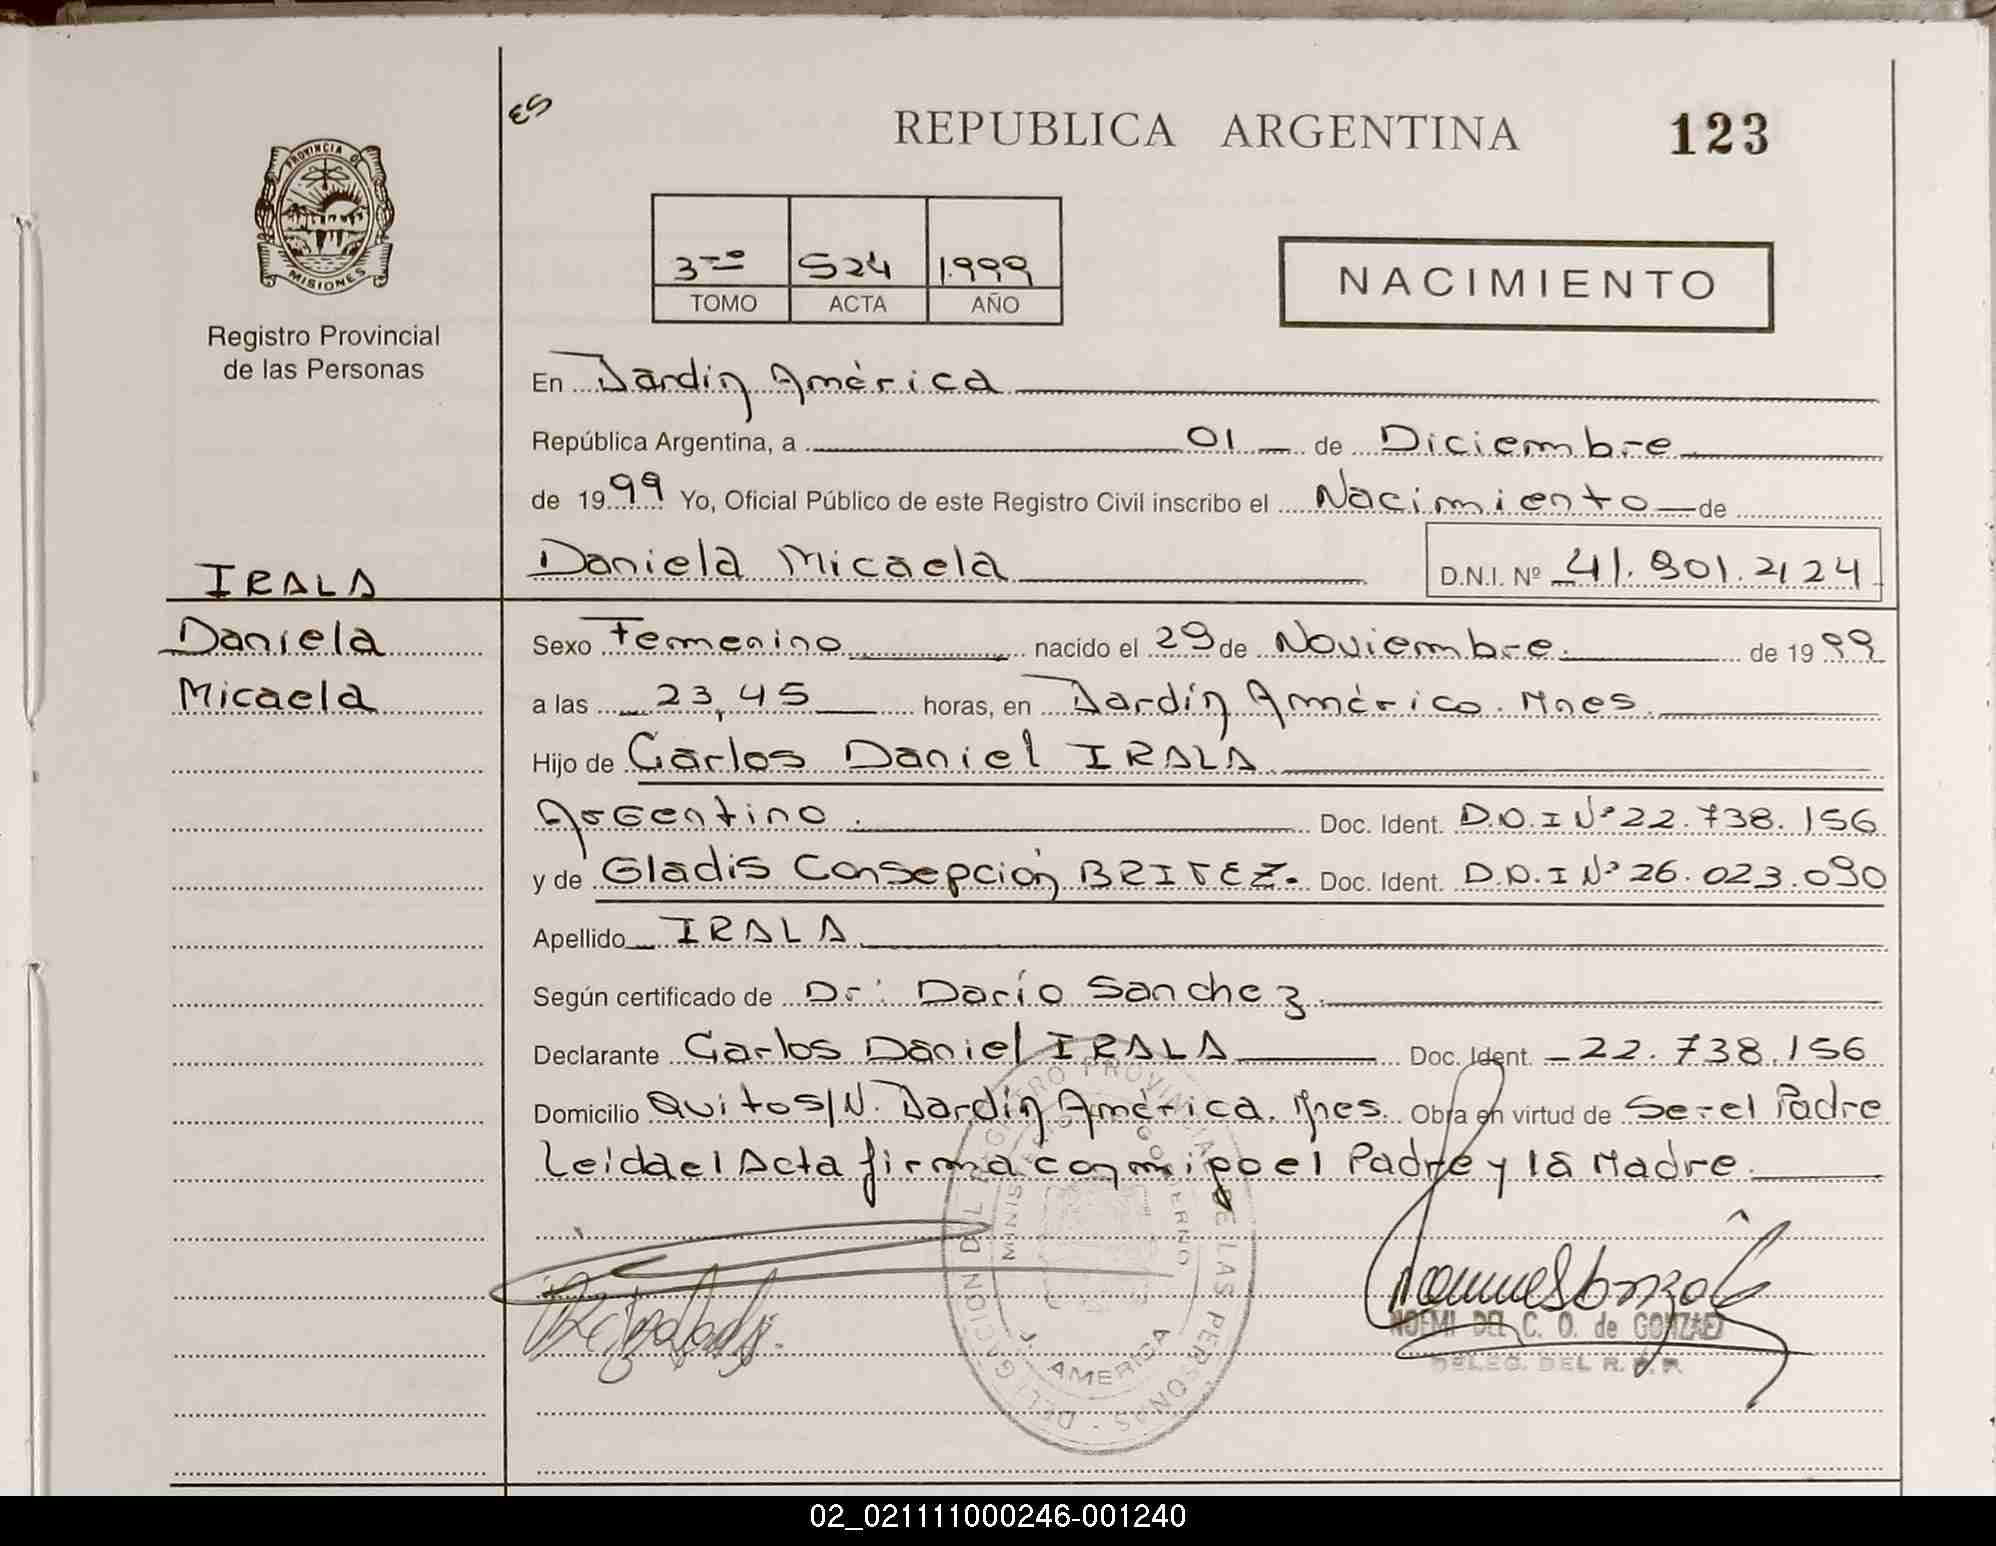 ES
REPUBLICA ARGENTINA
123
PROVINCIA DE
MISIONES
Registro Provincial
de las Personas
3ro 524 1.999
TOMO ACTA AÑO
NACIMIENTO
En Jardín América
República Argentina, a 01 de Diciembre
de 1999 Yo, Oficial Público de este Registro Civil inscribo el Nacimiento de
IRALA
Daniela
Micaela
Daniela Micaela D.N.I. Nº 41.901.2124
Sexo Femenino nacido el 29 de Noviembre. de 1999
a las 23,45 horas, en Jardín América. Mnes.
Hijo de Carlos Daniel IRALA
Argentino. Doc. Ident. D.N.I Nº 22.738.156
y de Gladis Consepción BRITEZ. Doc. Ident. D.N.I Nº 26.023.090
Apellido IRALA
Según certificado de Dr: Darío Sanchez.
Declarante Carlos Daniel IRALA Doc. Ident. 22.738.156
Domicilio Quito S/N. Jardín América. Mnes. Obra en virtud de Ser el Padre
Leida el Acta firma conmigo el Padre y la Madre.
DELEGACION DEL REGISTRO PROVINCIAL DE LAS PERSONAS
MINISTERIO DE GOBIERNO
J. AMERICA
NOEMI DEL C. O. de GONZALEZ
DELEG. DEL R. P. P.
02_021111000246-001240